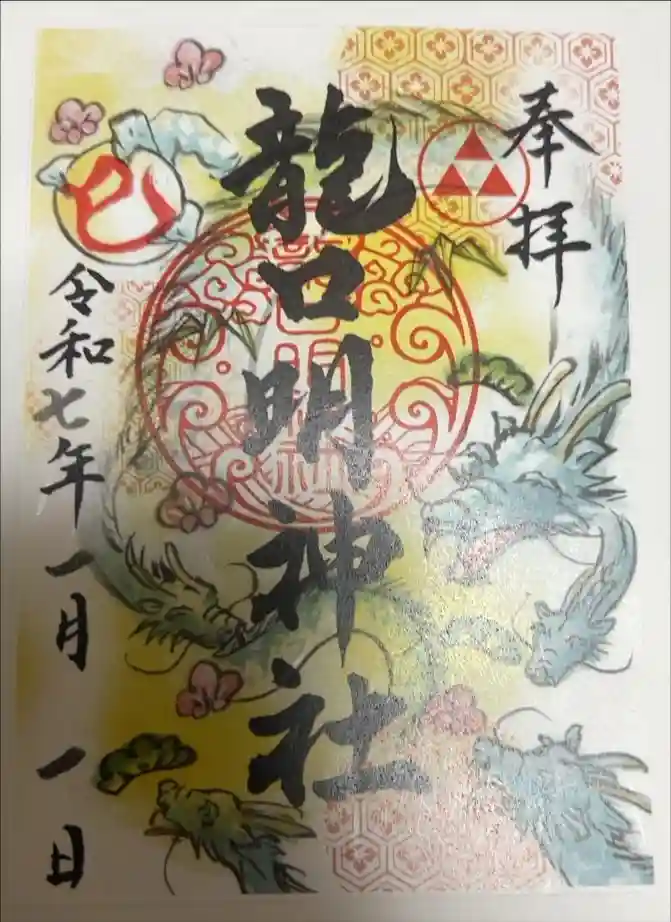 奉拝
龍口明神社
巳
令和七年一月一日